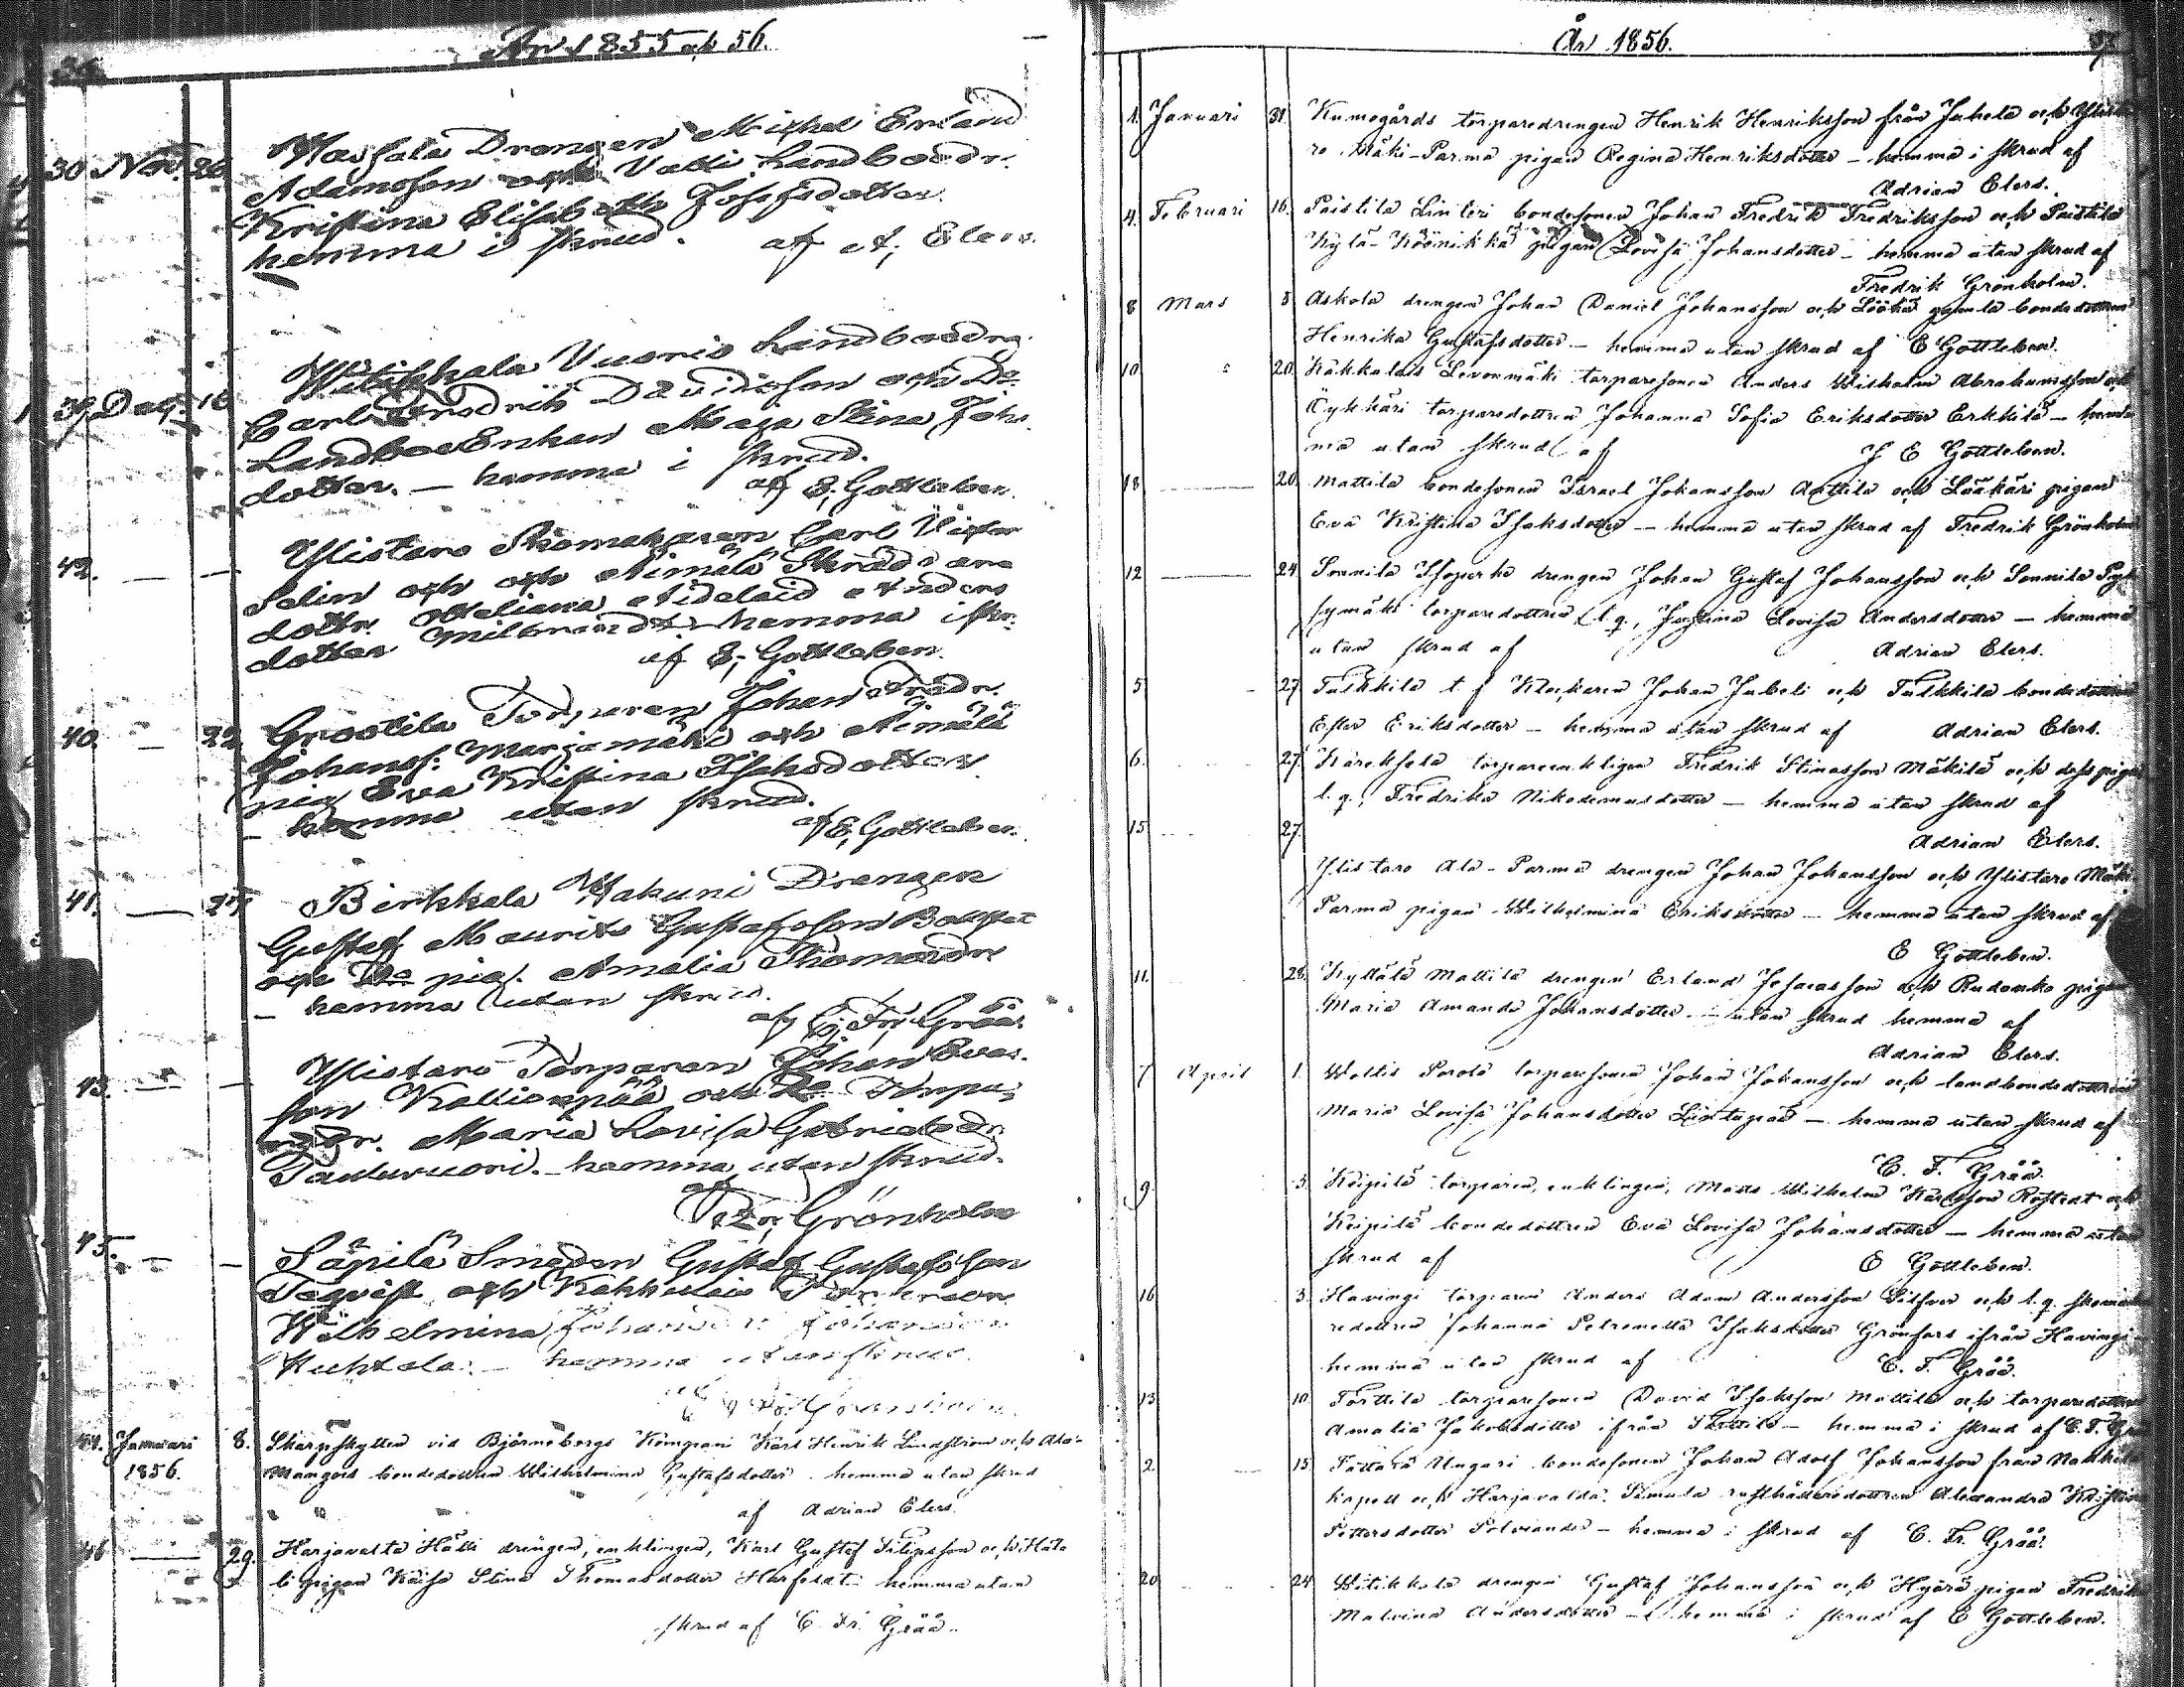 År 1855 och 56.
36.
30 Nov. 26 Masala Drengen Michel Erland
Adamsson och Valli Landboedr.
Kristina Elisabeth Josefsdotter.
hemma i skrud. af A, Elers.
39. Dec. 16 Witikkala Vuorio Landboedrg.
Carl Fredrik Davidsson och Do
Landboe Enkan Maja Stina Johs
dotter. — hemma i skrud.
af E, Gottleben.
42. — — Ylistaro Skomakaren Carl Victor
Selin och och Äimälä Skräddare
dottr. Adelaid Anders
dotter hemma i skr:
af E, Gottleben.
40. — 22 Grootila Torparen Johan Fredr.
Johanss: Marjamäki och Äimälä
pig Ewa Kristina Isaksdotter
— hemma utan skrud.
af E, Gottleben.
41. — 27 Birkkala Wahuni Drengen
Gustaf Maurits Gustafsson
och Do pig. Amalia Thomasdr
— hemma utan skrud.
af C, Fr, Gråå
43. — — Ylistaro Torparen Johan Evas.
son Kalliopää och Do Torpa
redr. Maria Lovisa Gabrielsdr
hemma utan skrud.
af
Fr, Grönholm
45. — — Säpilä Smeden Gustaf Gustafsson
Tegvist och Kakkulais
Wilhelmina
Huhtala. — hemma utan skrud.
44. Januari 8. Skarpskytten vid Björneborgs Kompani Karl Henrik Lindström och Ala-
1856. Mangois bondedottren Wilhelmina Gustafsdotter. hemma utan skrud
af Adrian Elers.
46 — 29. Harjavalta Hälli drengen, enklingen, Karl Gustaf Filipsson och Häl
li pigan Kajsa Stina Thomasdotter hemma utan
skrud af C. Fr. Gråå.
År 1856.
37.
1. Januari 31. Kumogårds torparedrengen Henrik Henriksson från Jakola och Ylista
ro Mäki-Parma pigan Regina Henriksdotter — hemma i skrud af
Adrian Elers.
4. Februari 16. Paistila Linteri bondesonen Johan Fredrik Fredriksson och Paistila
Kylä-Köönikkä pigan Lovisa Johansdotter — hemma utan skrud af
Fredrik Grönholm.
8 Mars 8 Askola drengen Johan Daniel Johansson och Löökä gamla bondedottren
Henrika Gustafsdotter — hemma utan skrud af E Gottleben.
10. " 20. Kakkulais Levonmäki torparesonen Anders Wilhelm Abrahamsson och
Öykkäri torparedottren Johanna Sofia Eriksdotter Erkkilä — hem
ma utan skrud af J E Gottleben.
18 — 20. Mattila bondesonen Israel Johansson Anttila och Lääkäri pigan
Eva Kristina Isaksdotter — hemma utan skrud af Fredrik Grönholm
12 — 24 Sonnila Isoperho drengen Johan Gustaf Johansson och Sonnila
torparedottren l. q., Justina Lovisa Andersdotter — hemma
utan skrud af Adrian Elers.
5 - 27 Tulkkila t. f Klockaren Johan Jubeli och Tulkkila bondedottren
Ester Eriksdotter — hemma utan skrud af Adrian Elers.
6. 27. Kareksela torpareenklingen Fredrik Stinasson Mäkilä och dess piga
l. q., Fredrika Nikodemusdotter — hemma utan skrud af
Adrian Elers.
15 27. Ylistaro Ala-Parma drengen Johan Johansson och Ylistaro Mäki
Parma pigan Wilhelmina Eriksdotter — hemma utan skrud af
E Gottleben.
11. 28. Kyttälä Mattila drengen Erland Jesaiasson och Rudanko pigan
Maria Amanda Johansdotter — utan skrud hemma af
Adrian Elers.
7 April 1. Wallis Porola torparesonen Johan Johansson och landbondedottren
Maria Lovisa Johansdotter — hemma utan skrud af
C. F. Gråå.
9. 3. Köipilä torparen, enklingen, Matts Wilhelm Karlsson och
Köipilä bondedottren Eva Lovisa Johansdotter — hemma utan
skrud af E Gottleben.
16. 3. Havingi torparen Anders Adam Andersson Silfver och l. q. skoma
redottren Johanna Petronella Isaksdotter Grönfors ifrån Havingi
hemma utan skrud af C. F. Gråå.
13. 10. Torttila torparesonen David Isaksson Mattila och torparedottren
Amalia Jakobsdotter ifrån Torttila — hemma i skrud af C. F. Gråå
2. — 15 Tattara Ungari bondesonen Johan Adolf Johansson från Nakkila
kapell och Harjavalda rusthållaredottren Alexandra Kristina
Pettersdotter Polviander — hemma i skrud af C. Fr. Gråå.
20. 24 Witikkala drengen Gustaf Johansson och Hyörä pigan Fredrika
Malvina Andersdotter — hemma i skrud af E Gottleben.